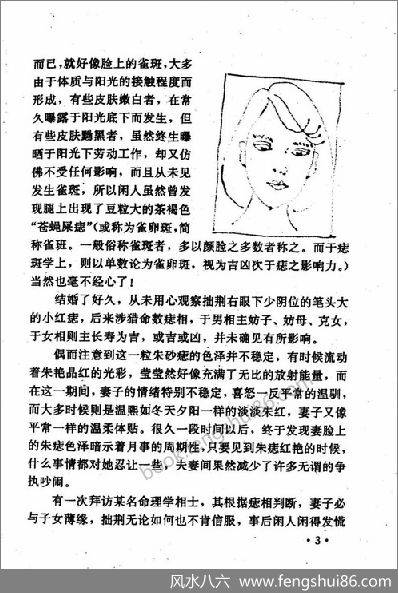 而已，就好像脸上的雀斑，大多
由于体质与阳光的接触程度而
形成，有些皮肤嫩白者，在常
久曝露于阳光底下而发生。但
有些皮肤黝黑者，虽然终生曝
晒于阳光下劳动工作，却又仿
佛不受任何影响，而且从未见
发生雀斑，所以闲人虽然曾发
现腿上出现了豆粒大的茶褐色
“苍蝇屎痣”（或称为雀卵斑，简
称雀班。一般俗称雀斑者，多以颜脸之多数者称之。而于痣
斑学上，则以单数论为雀卵斑，视为吉凶次于痣之影响力。）
当然也毫不经心了！
结婚了好久，从未用心观察拙荆右眼下少阴位的笔头大
的小红痣，后来涉猎命数痣相，于男相主妨子、妨母、克女，
于女相则主长寿为吉，或吉或凶，并未确见有所影响。
偶而注意到这一粒朱砂痣的色泽并不稳定，有时候流动
着朱艳晶红的光彩，莹莹然好像充满了无比的放射能量，而
在这一期间，妻子的情绪特别不稳定，喜怒一反平常的温驯，
而大多时候则是温熙如冬天夕阳一样的淡淡朱红，妻子又像
平常一样的温柔体贴。很久一段时间以后，终于发现妻脸上
的朱痣色泽暗示着月事的周期性，只要见到朱痣红艳的时候，
什么事情都对她忍让一些，夫妻间果然减少了许多无谓的争
执吵闹。
有一次拜访某名命理学相士，其根据痣相判断，妻子必
与子女薄缘，拙荆无论如何也不肯信服，事后闲人闲得发慌
·3·
风水八六 www.fengshui86.com